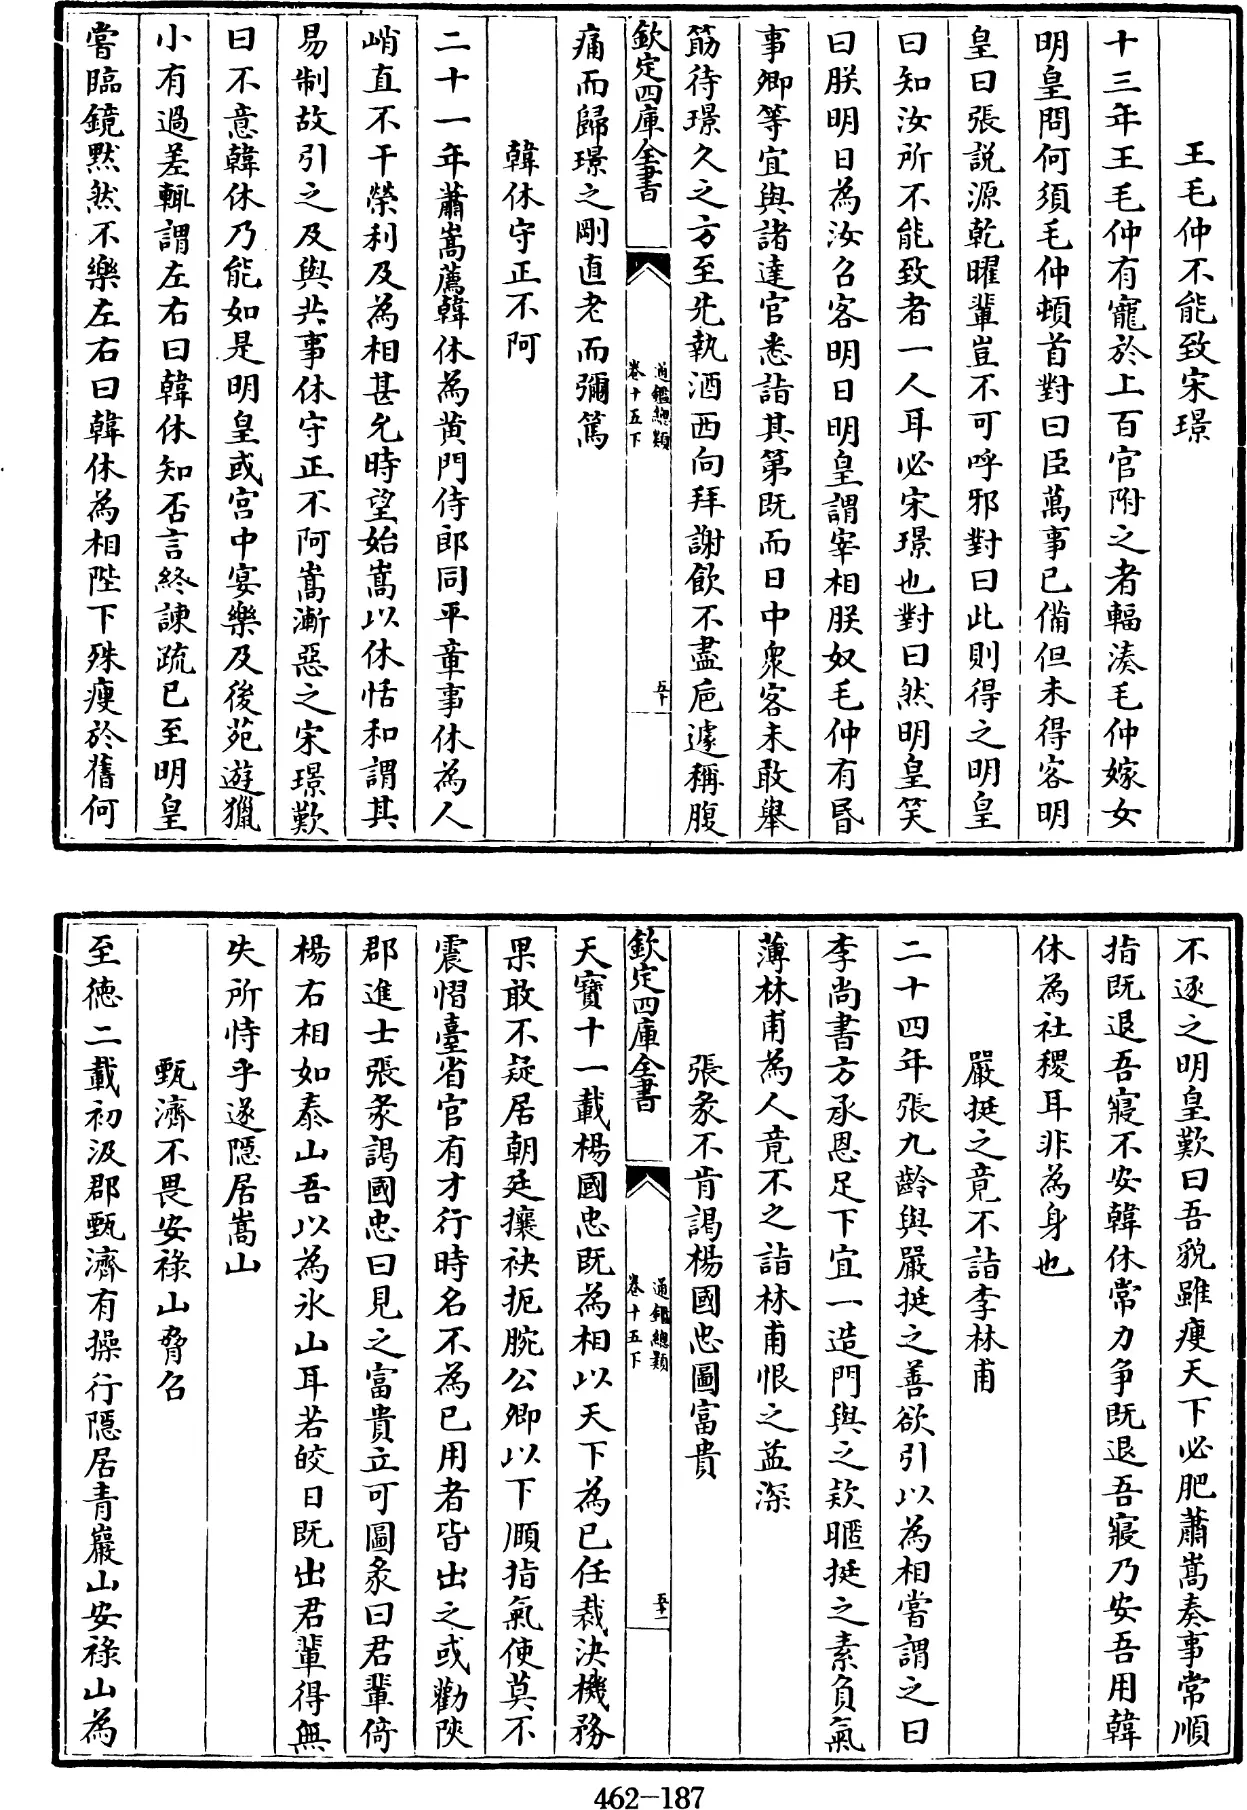 王毛仲不能致宋璟
十三年王毛仲有寵於上百官附之者輻湊毛仲嫁女
明皇問何須毛仲頓首對曰臣萬事已備但未得客明
皇曰張説源乾曜輩豈不可呼邪對曰此則得之明皇
曰知汝所不能致者一人耳必宋璟也對曰然明皇笑
曰朕明日為汝召客明日明皇謂宰相朕奴毛仲有昏
事卿等宜與諸達官悉詣其第既而日中衆客未敢舉
筯待璟久之方至先執酒西向拜謝飲不盡巵遽稱腹
欽定四庫全書
通鑑總類
卷十五下
五十
痛而歸璟之剛直老而彌篤
韓休守正不阿
二十一年蕭嵩薦韓休為黄門侍郎同平章事休為人
峭直不干榮利及為相甚允時望始嵩以休恬和謂其
易制故引之及與共事休守正不阿嵩漸惡之宋璟歎
曰不意韓休乃能如是明皇或宫中宴樂及後苑遊獵
小有過差輒謂左右曰韓休知否言終諫疏已至明皇
嘗臨鏡黙然不樂左右曰韓休為相陛下殊瘦於舊何
不逐之明皇歎曰吾貌雖瘦天下必肥蕭嵩奏事常順
指既退吾寢不安韓休常力争既退吾寢乃安吾用韓
休為社稷耳非為身也
嚴挺之竟不詣李林甫
二十四年張九齡與嚴挺之善欲引以為相嘗謂之曰
李尚書方承恩足下宜一造門與之款暱挺之素負氣
薄林甫為人竟不之詣林甫恨之益深
張彖不肯謁楊國忠圖富貴
欽定四庫全書
通鑑總類
卷十五下
五十一
天寶十一載楊國忠既為相以天下為己任裁決機務
果敢不疑居朝廷攘袂扼腕公卿以下頤指氣使莫不
震慴臺省官有才行時名不為己用者皆出之或勸陝
郡進士張彖謁國忠曰見之富貴立可圖彖曰君輩倚
楊右相如泰山吾以為氷山耳若皎日既出君輩得無
失所恃乎遂隱居嵩山
甄濟不畏安祿山脅召
至徳二載初汲郡甄濟有操行隱居青巖山安祿山為
462-187